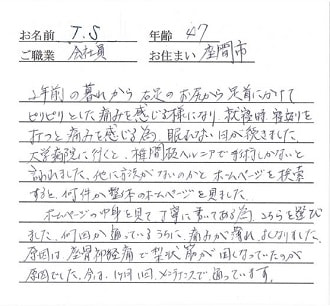 お名前 T.S 年齢 47
ご職業 会社員 お住まい 座間市
2年前の暮れから右足のお尻から足首にかけて
ピリピリとした痛みを感じる様になり、就寝時寝返りを
打つと痛みを感じる為、眠れない日が続きました。
大学病院に行くと、椎間板ヘルニアで手術しかないと
言われました。他に方法がないのかとホームページを検索
すると、何件か整体のホームページを見ました。
ホームページの中身を見て丁寧に書いてある為、こちらを選び
ました。何回か通っているうちに、痛みが薄れ、よくなりました。
原因は、座骨神経痛で梨状筋が固くなっていたのが
原因でした。今は、1ヶ月1回、メンテナンスで通っています。